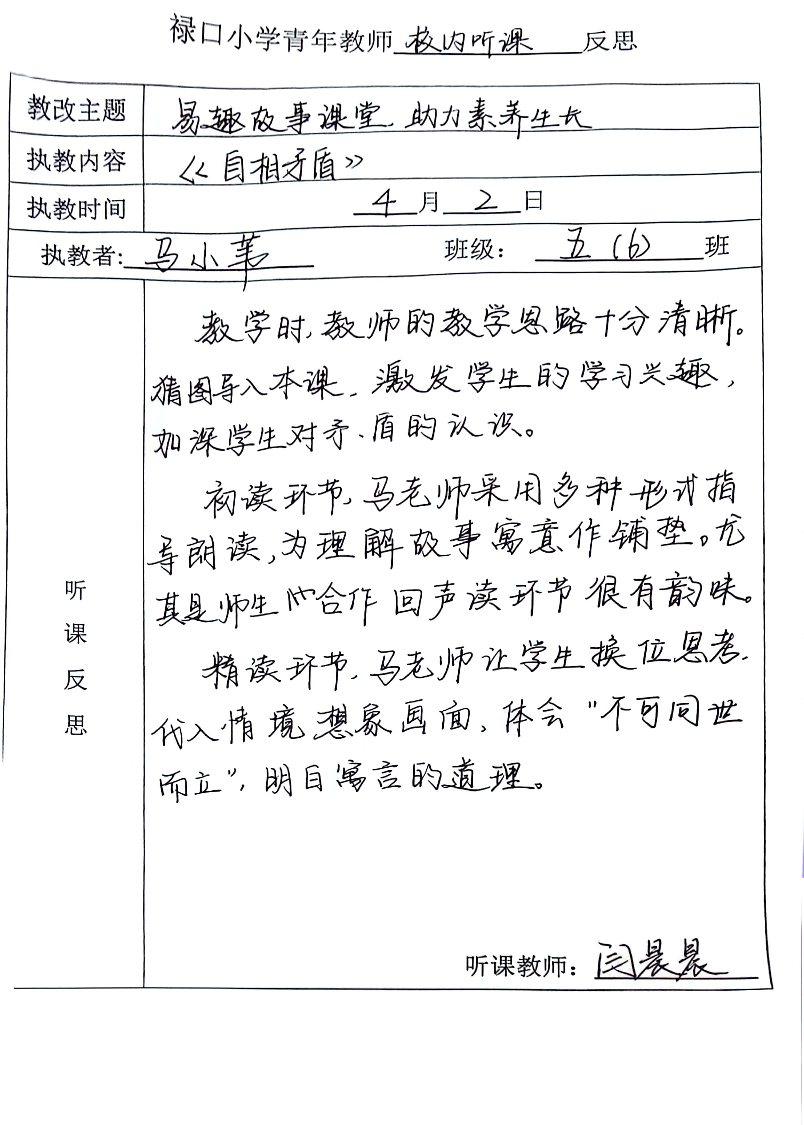 禄口小学青年教师校内听课反思
教改主题 易趣故事课堂、助力素养生长
执教内容 《自相矛盾》
执教时间 4月2日
执教者:马小苇 班级：五（6）班
听课反思
教学时，教师的教学思路十分清晰。
猜图导入本课、激发学生的学习兴趣，
加深学生对矛、盾的认识。
初读环节，马老师采用多种形式指
导朗读，为理解故事寓意作铺垫。尤
其是师生合作回声读环节很有韵味。
精读环节，马老师让学生换位思考、
代入情境想象画面，体会“不可同世
而立”，明白寓言的道理。
听课教师：闫晨晨